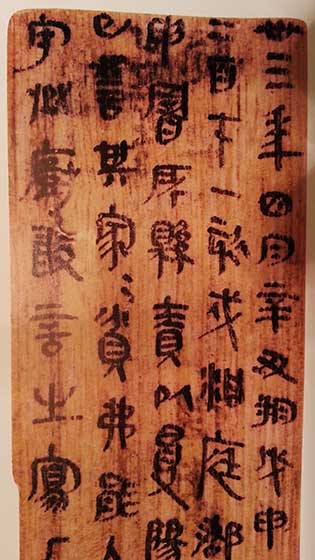 卅三年四月辛丑朔戊申
二百七十一戍洞庭郡
署所縣責以受陽
已訾其家〻貧弗能入
守丞廚敢言之寫上